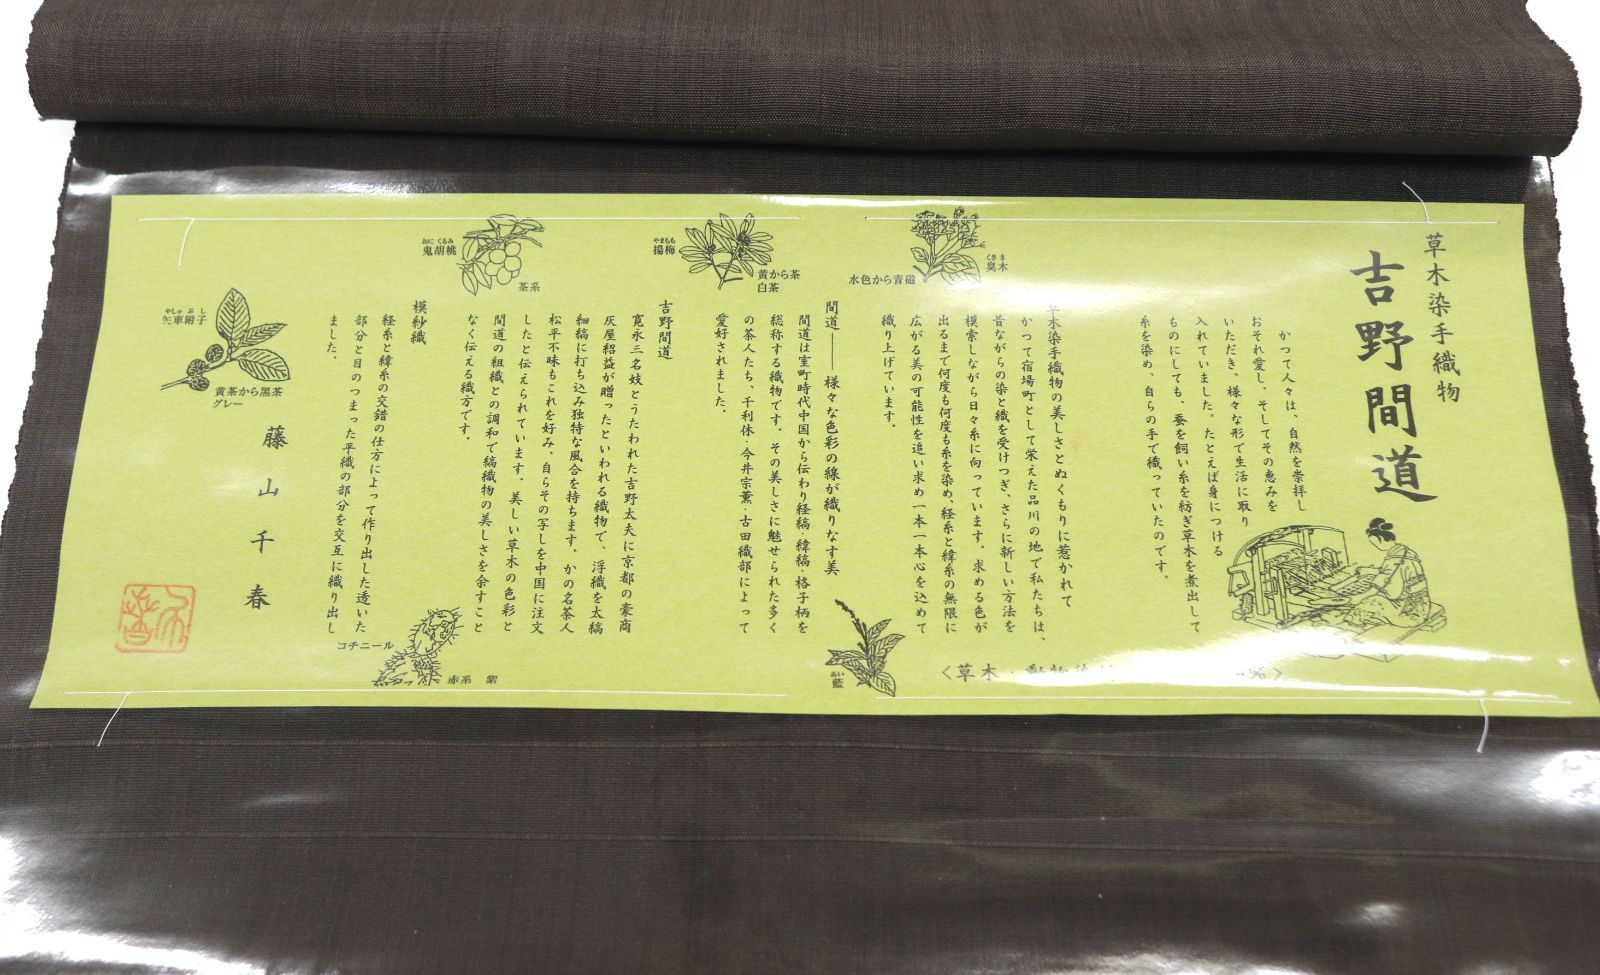 草木染手織物
吉野間道
かつて人々は、自然を崇拝し
おそれ愛し、そしてその恵みを
いただき、様々な形で生活に取り
入れていました。たとえば身につける
ものにしても、蚕を飼い糸を紡ぎ草木を煮出して
糸を染め、自らの手で織っていたのです。
草木染手織物の美しさとぬくもりに惹かれて
かつて宿場町として栄えた品川の地で私たちは、
昔ながらの染と織を受けつぎ、さらに新しい方法を
模索しながら日々糸に向っています。求める色が
出るまで何度も何度も糸を染め、経糸と緯糸の無限に
広がる美の可能性を追い求め一本一本心を込めて
織り上げています。
間道――様々な色彩の線が織りなす美
間道は室町時代中国から伝わり経縞・緯縞・格子柄を
総称する織物です。その美しさに魅せられた多く
の茶人たち、千利休・今井宗薫・古田織部によって
愛好されました。
吉野間道
寛永三名妓とうたわれた吉野太夫に京都の豪商
灰屋紹益が贈ったといわれる織物で、浮織を太縞
細縞に打ち込み独特な風合を持ちます。かの名茶人
松平不昧もこれを好み、自らその写しを中国に注文
したと伝えられています。美しい草木の色彩と
間道の組織との調和で縞織物の美しさを余すこと
なく伝える織方です。
模紗織
経糸と緯糸の交錯の仕方によって作り出した透いた
部分と目のつまった平織の部分を交互に織り出し
ました。
藤山千春
くさき
臭木
水色から青磁
やまもも
揚梅
黄から茶
白茶
おにくるみ
鬼胡桃
茶系
やしゃぶし
矢車附子
黄茶から黒茶
グレー
コチニール
赤系 紫
あい
藍
〈草木